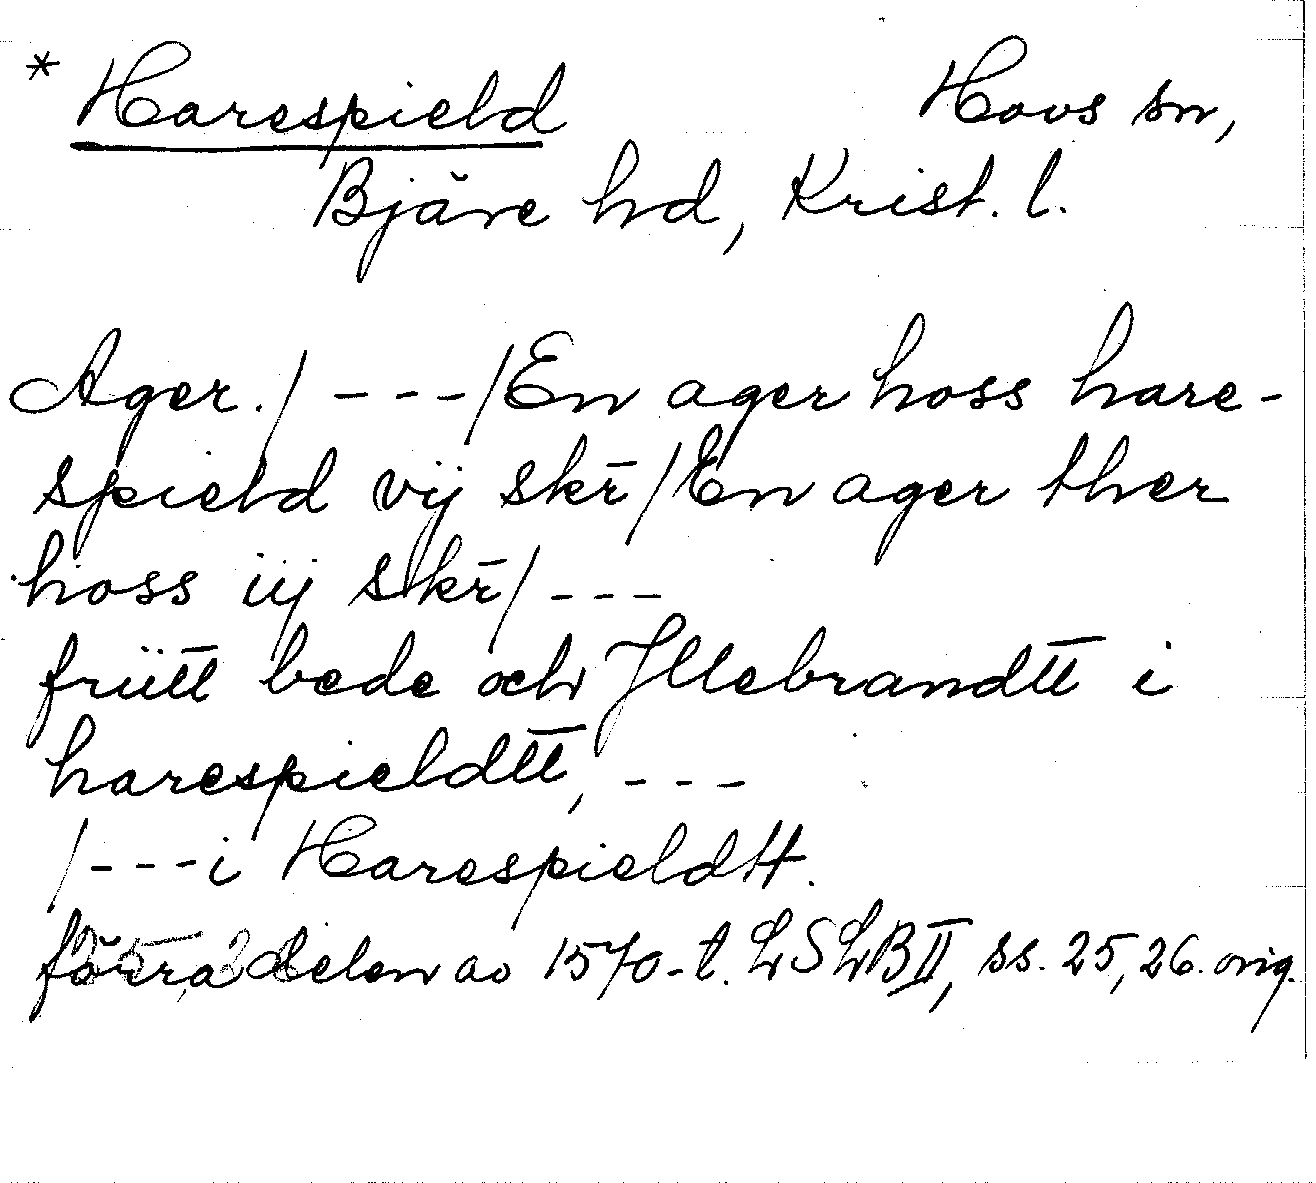 * Harespield Hovs sn,
Bjäre hd, Krist. l.
Ager./---/En ager hoss hare-
spield vij skr̄/En ager ther
hoss iij skr̄/---
friitt bede och Jllebrandtt i
harespieldtt, ---
/---i Harespieldtt.
förra delen av 1570-t. LSLB II, ss. 25, 26. orig.